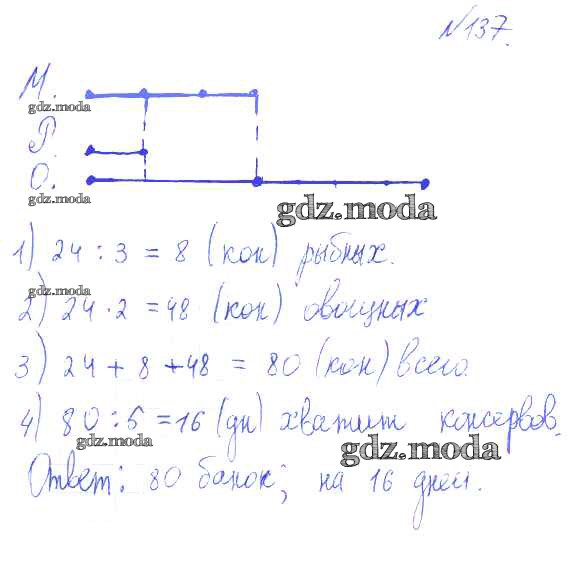 №137.
М.
gdz.moda
Р.
О.
gdz.moda
gdz.moda
1) 24 : 3 = 8 (кон) рыбных.
gdz.moda
2) 24 · 2 = 48 (кон) овощных
3) 24 + 8 + 48 = 80 (кон) всего.
4) 80 : 5 = 16 (дн) хватит консервов.
gdz.moda
gdz.moda
Ответ: 80 банок; на 16 дней.